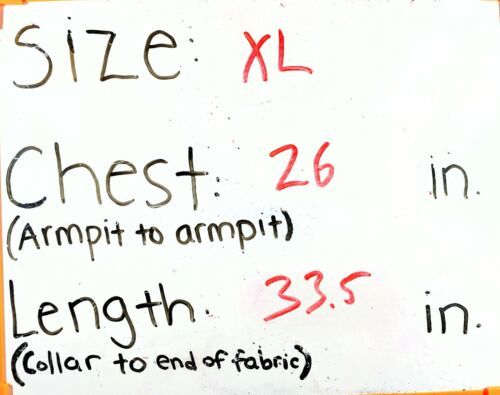 Size: XL
Chest: 26 in.
(Armpit to armpit)
Length. 33.5 in.
(Collar to end of fabric)